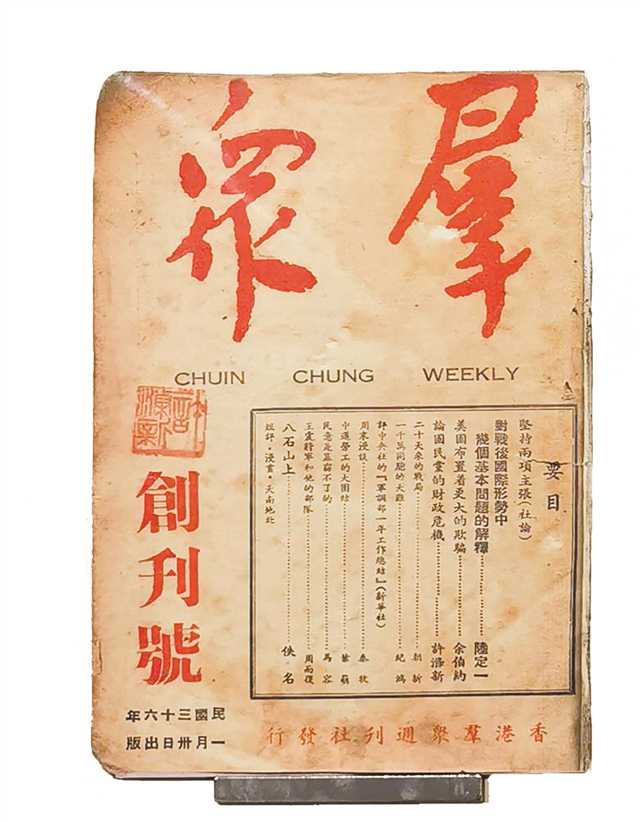 羣眾
CHUIN CHUNG WEEKLY
要目
堅持兩項主張(社論)
對戰後國際形勢中
幾個基本問題的解釋………陸定一
美國布置着更大的欺騙………余伯約
論國民黨的財政危機………許滌新
二十天來的戰局………新
一千萬同胞的大難………紀鴻
評中央社的『軍調部一年工作總結』(新華社)
周末漫談………秦牧
勞工的大團結………
民意是篡竊不了的………馬容
王震將軍和他的部隊………周而復
八石山上………佚名
短評·漫畫·天南地北
創刊號
民國三十六年
一月卅日出版
香港羣眾週刊社發行